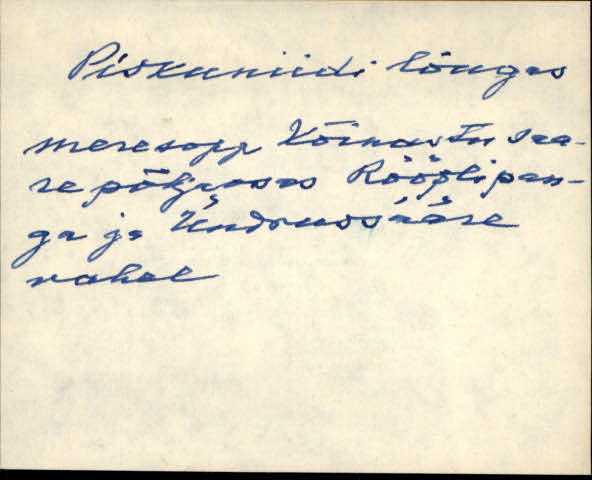 Piskuniidi lõugas
meresopp Võrnastu saa-
re põhjaosas Rööpli pan-
ga ja Ündruossääre
vahel